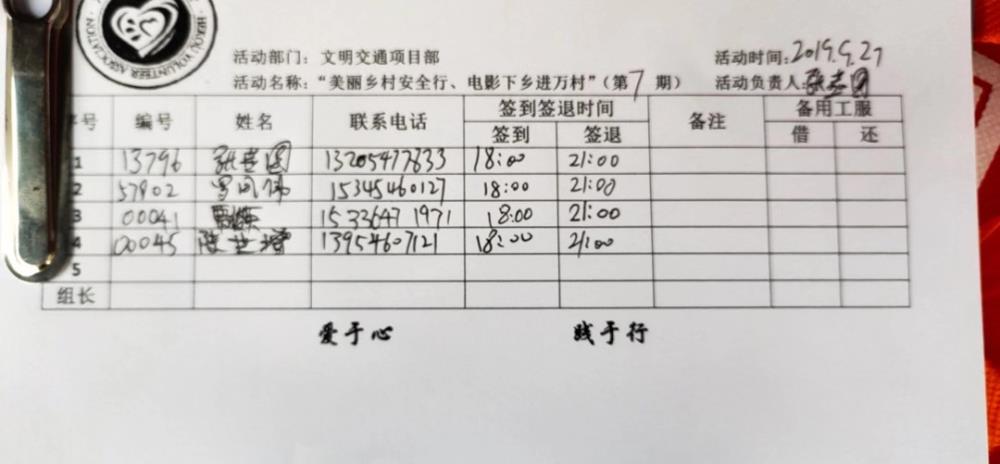 HEKOU VOLUNTEER ASSOCIATION
活动部门：文明交通项目部 活动时间：2019.9.27
活动名称：“美丽乡村安全行、电影下乡进万村”（第7期） 活动负责人：
序号 编号 姓名 联系电话 签到签退时间 备注 备用工服
签到 签退 借 还
1 13796 13205477833 18:00 21:00
2 57802 15345460127 18:00 21:00
3 00041 15336471971 18:00 21:00
4 00045 13954607121 18:00 21:00
5
组长
爱于心 践于行